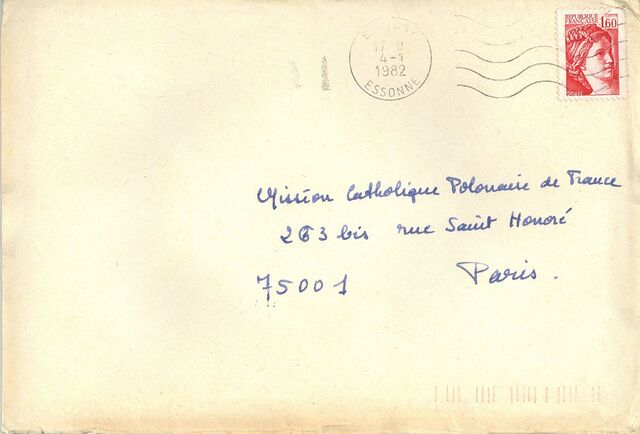 REPUBLIQUE
FRANCAISE
1,60
17 H
4-1
1982
ESSONNE
Mission Catholique Polonaise de France
263 bis rue Saint Honoré
75001 Paris.